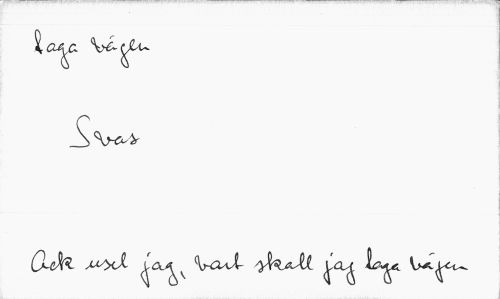 taga vägen
Svas
Ack usel jag, vart skall jag taga vägen